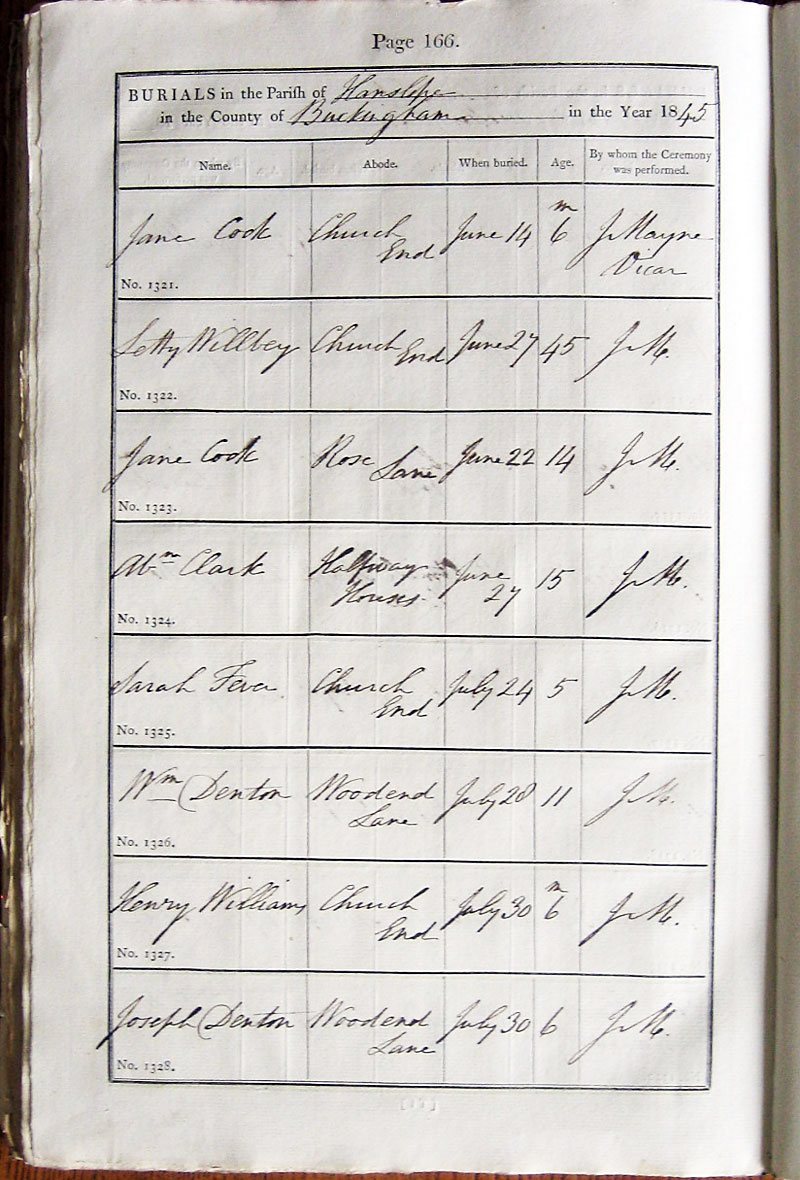 Page 166.
BURIALS in the Parish of Hanslope
in the County of Buckingham in the Year 1845
Name. Abode. When buried. Age. By whom the Ceremony was performed.
Jane Cook Church End June 14 6 m J Mayne Vicar
No. 1321.
Letty Willbey Church End June 27 45 J M.
No. 1322.
Jane Cook Rose Lane June 22 14 J M.
No. 1323.
Abm Clark Halfway Houses June 27 15 J M.
No. 1324.
Sarah Feve Church End July 24 5 J M.
No. 1325.
Wm Denton Woodend Lane July 28 11 J M.
No. 1326.
Henry Williams Church End July 30 6 m J M.
No. 1327.
Joseph Denton Woodend Lane July 30 6 J M.
No. 1328.